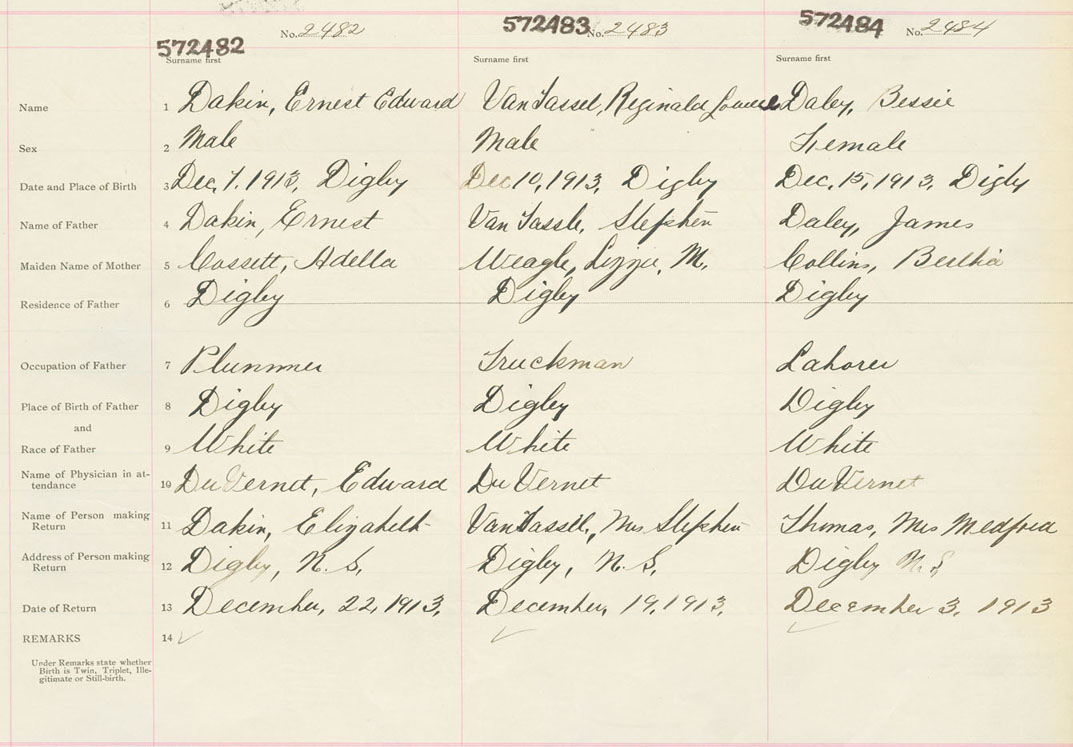 572482 No. 2482 572483 No. 2483 572484 No. 2484
Surname first Surname first Surname first
Name 1 Dakin, Ernest Edward VanTassel, Reginald Daley, Bessie
Sex 2 Male Male Female
Date and Place of Birth 3 Dec, 7. 1913, Digby Dec 10, 1913, Digby Dec, 15, 1913, Digby
Name of Father 4 Dakin, Ernest Van Tassle, Stephen Daley, James
Maiden Name of Mother 5 Cossett, Adella Weagle, Lizzie, M. Collins, Bertha
Residence of Father 6 Digby Digby Digby
Occupation of Father 7 Plummer Truckman Laborer
Place of Birth of Father 8 Digby Digby Digby
and
Race of Father 9 White White White
Name of Physician in at-
tendance 10 DuVernet, Edward DuVernet DuVernet
Name of Person making
Return 11 Dakin, Elizabeth VanTassel, Mrs Stephen Thomas, Mrs Medford
Address of Person making
Return 12 Digby, N. S. Digby, N. S. Digby N. S.
Date of Return 13 December, 22, 1913, December, 19, 1913, December 3, 1913
REMARKS 14
Under Remarks state whether
Birth is Twin, Triplet, Ille-
gitimate or Still-birth.